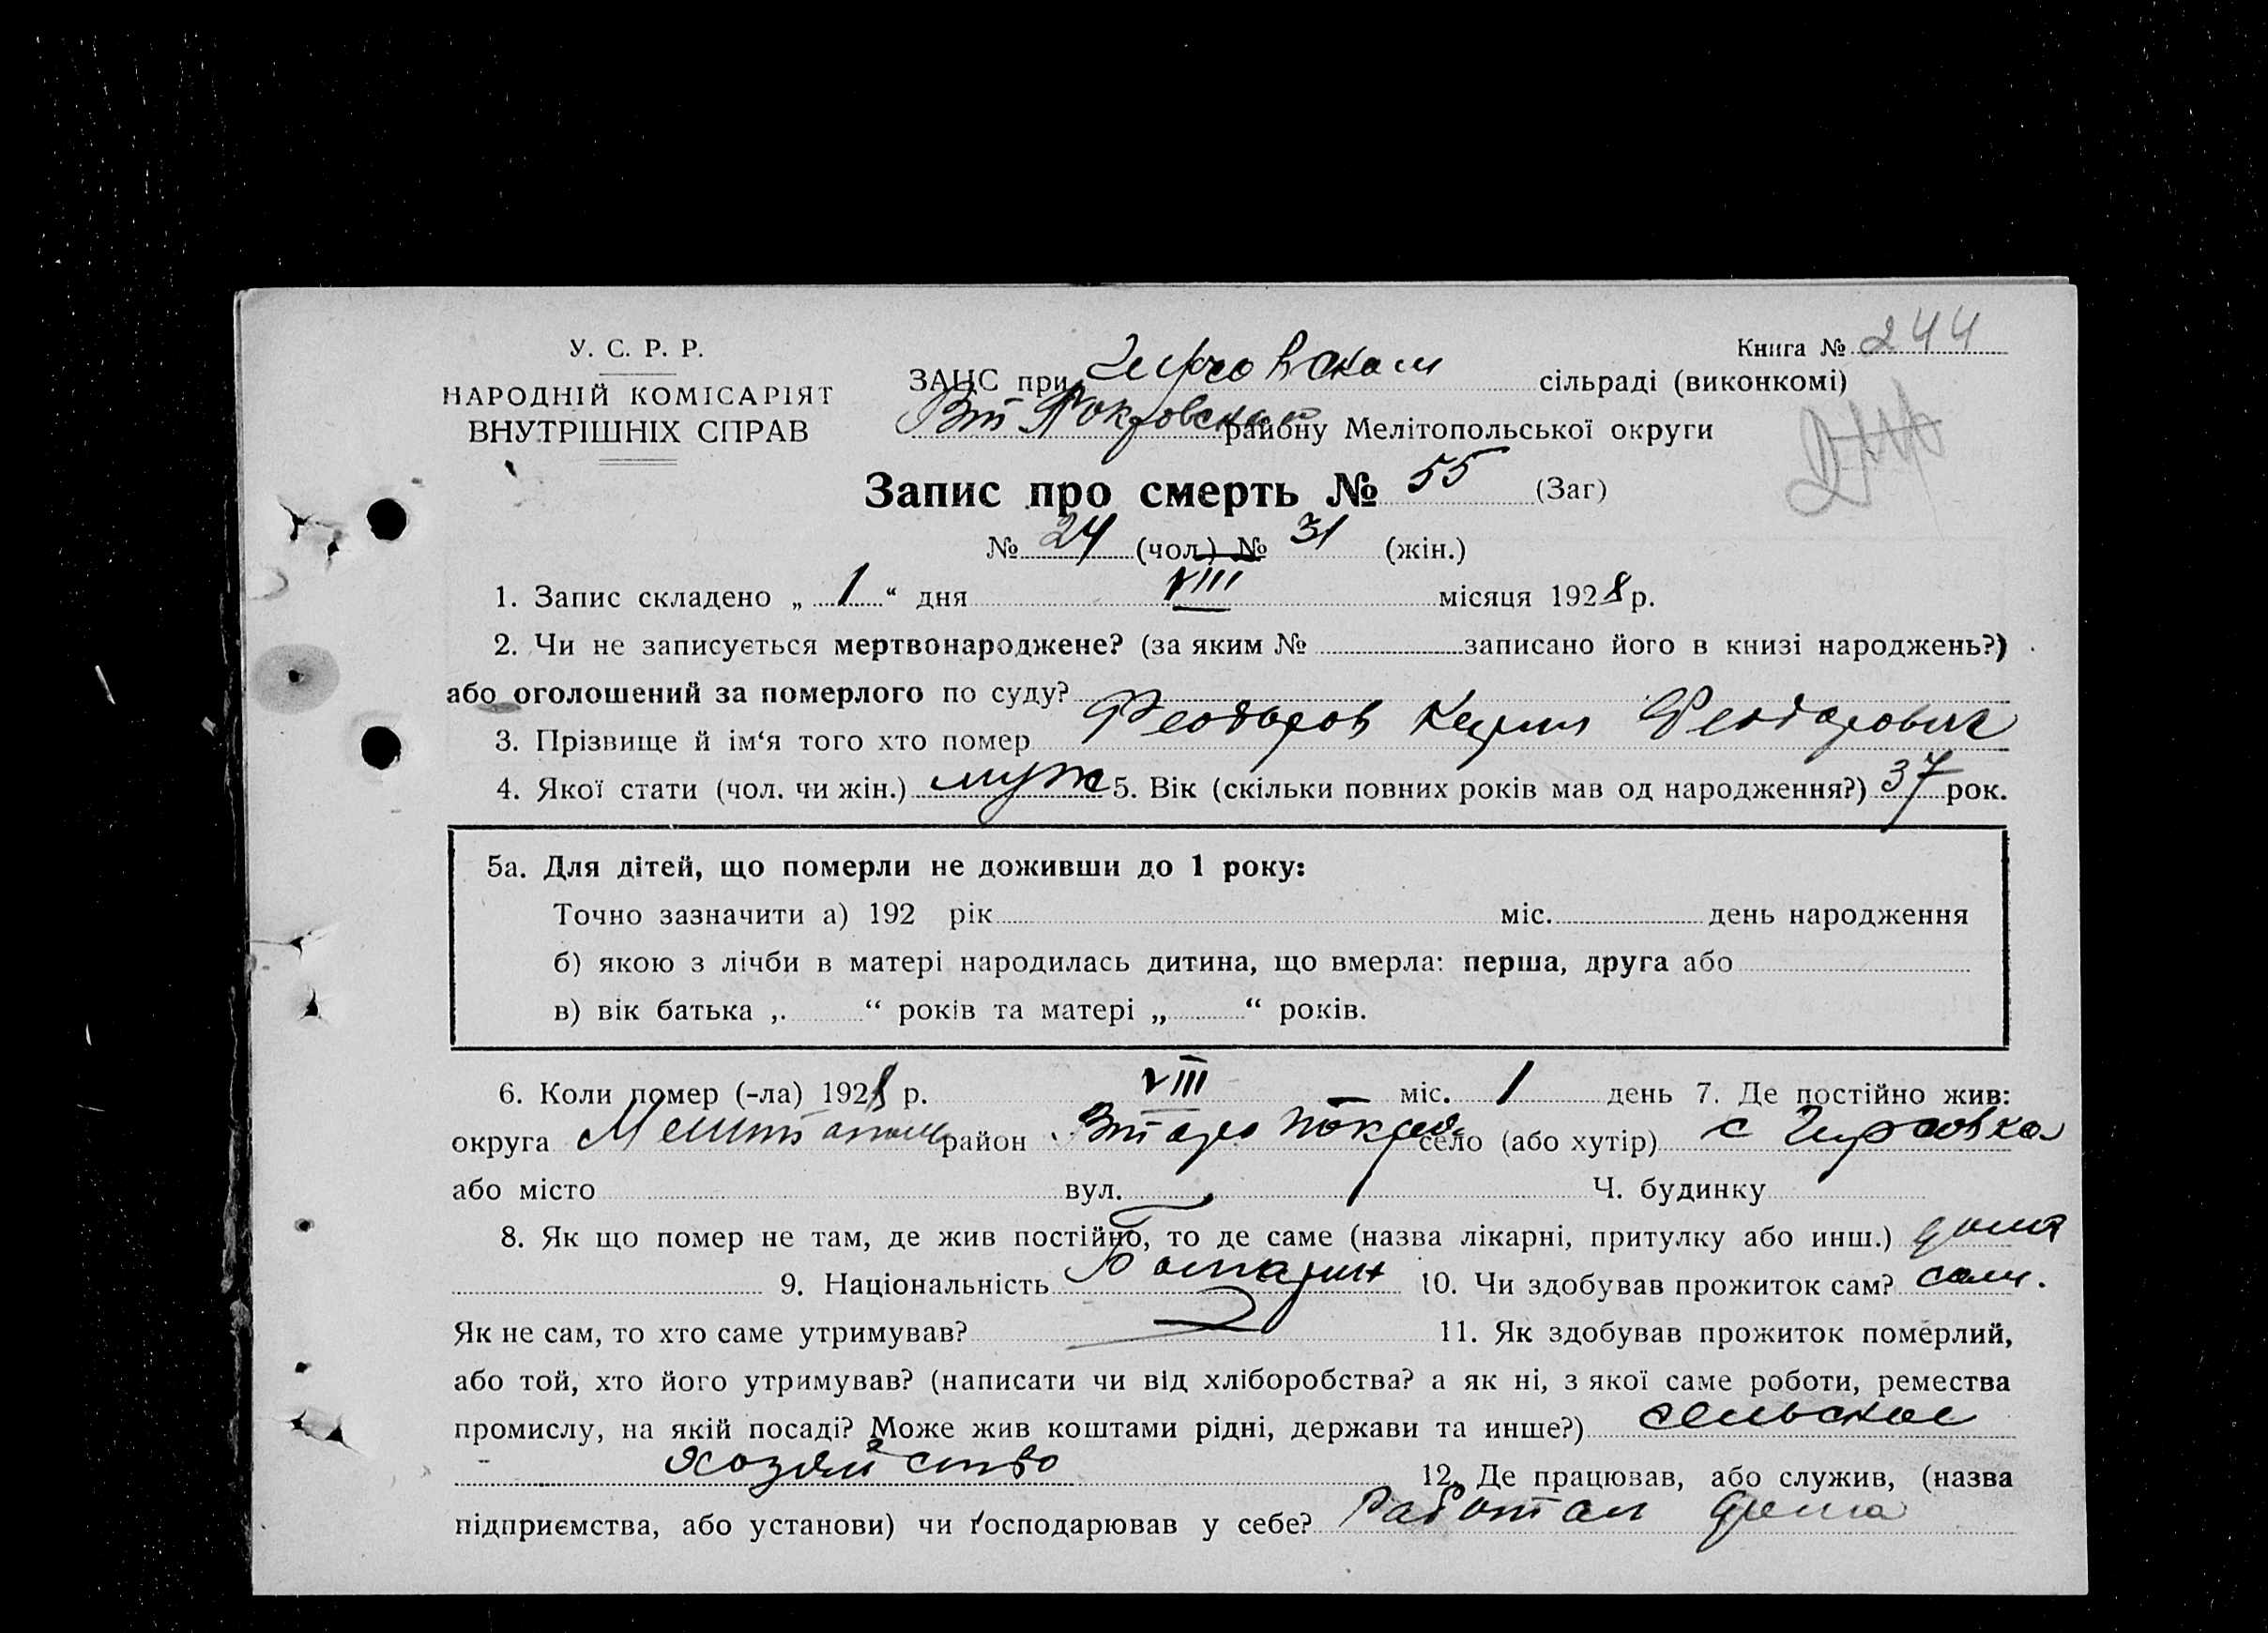 У. С. Р. Р.
НАРОДНІЙ КОМІСАРІЯТ
ВНУТРІШНІХ СПРАВ
Книга № 244
ЗАЦС при Гирсовском сільраді (виконкомі)
Вт Покровский району Мелітопольської округи
Запис про смерть № 55 (Заг)
№ 24 (чол.) № 31 (жін.)
1. Запис складено „ 1 “ дня VIII місяця 1928 р.
2. Чи не записується мертвонароджене? (за яким № записано його в книзі народжень?)
або оголошений за померлого по суду?
3. Прізвище й ім‘я того хто помер Феодоров Феодорович
4. Якої стати (чол. чи жін.) муж 5. Вік (скільки повних років мав од народження?) 37 рок.
5а. Для дітей, що померли не доживши до 1 року:
Точно зазначити а) 192 рік міс. день народження
б) якою з лічби в матері народилась дитина, що вмерла: перша, друга або
в) вік батька „ “ років та матері „ “ років.
6. Коли помер (-ла) 1928 р. VIII міс. 1 день 7. Де постійно жив:
округа район село (або хутір) с Гирсовка
або місто вул. Ч. будинку
8. Як що помер не там, де жив постійно, то де саме (назва лікарні, притулку або инш.) дома
9. Національність Болгарин 10. Чи здобував прожиток сам? сам.
Як не сам, то хто саме утримував? 11. Як здобував прожиток померлий,
або той, хто його утримував? (написати чи від хліборобства? а як ні, з якої саме роботи, ремества
промислу, на якій посаді? Може жив коштами рідні, держави та инше?) сельское
хозяйство 12. Де працював, або служив, (назва
підприємства, або установи) чи ґосподарював у себе? работал дома